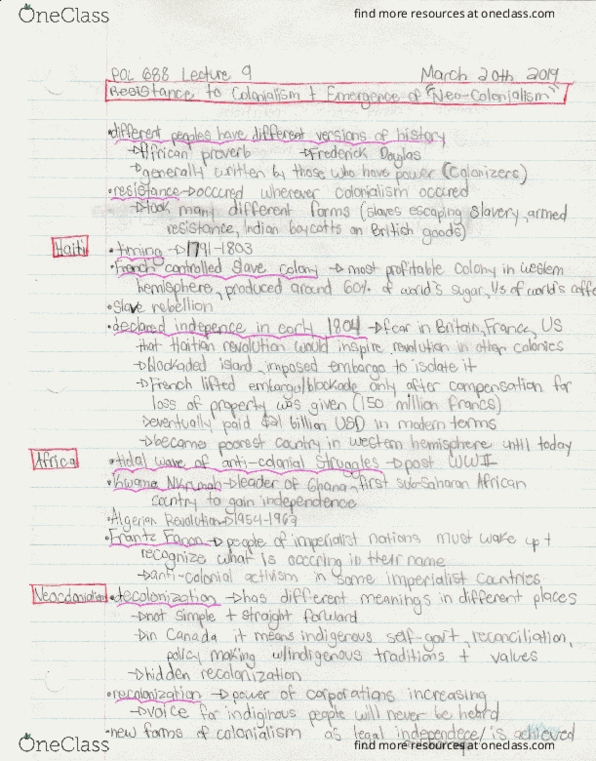 OneClass
find more resources at oneclass.com
POL 688 Lecture 9 March 20th 2019
Resistance to Colonialism + Emergence of "Neo-Colonialism"
•different peoples have different versions of history
→African proverb →Frederick Douglas
→generally written by those who have power (colonizers)
•resistance→occured wherever colonialism occured
→took many different forms (slaves escaping slavery, armed
resistance, Indian boycotts on British goods)
Haiti •timing →1791-1803
•French controlled slave colony →most profitable colony in western
hemisphere, produced around 60% of world's sugar, 1/3 of world's coffe
•slave rebellion
•declared indepence in early 1804 →fear in Britain, France, US
that Haitian revolution would inspire revolution in other colonies
→blockaded island, imposed embargo to isolate it
→French lifted embargo/blockade only after compensation for
loss of property was given (150 million francs)
→eventually paid $21 billion USD in modern terms
→became poorest country in western hemisphere until today
Africa •tidal wave of anti-colonial struggles →post WWII
•Kwame Nkrumah→leader of Ghana, first sub-Saharan African
country to gain independence
•Algerian Revolution→1954-1962
•Frantz Fanon→people of imperialist nations must wake up +
recognize what is occuring in their name
→anti-colonial activism in some imperialist countries
Neocolonialism •decolonization →has different meanings in different places
→not simple + straight forward
→in Canada it means indigenous self-gov't, reconciliation,
policy making w/indigenous traditions + values
→hidden recolonization
•recolonization →power of corporations increasing
→voice for indiginous people will never be heard
•new forms of colonialism as legal independece/ is achieved
OneClass
find more resources at oneclass.com